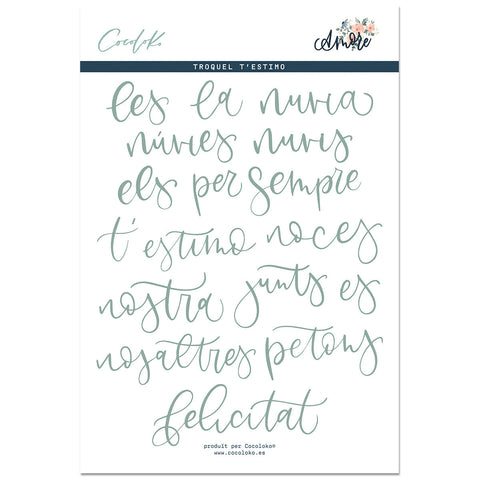 Cocoloko
Amore
TROQUEL T'ESTIMO
les la nuvia
núvies nuvis
els per sempre
t'estimo noces
nostra junts es
nosaltres petons
felicitat
produit per Cocoloko®
www.cocoloko.es